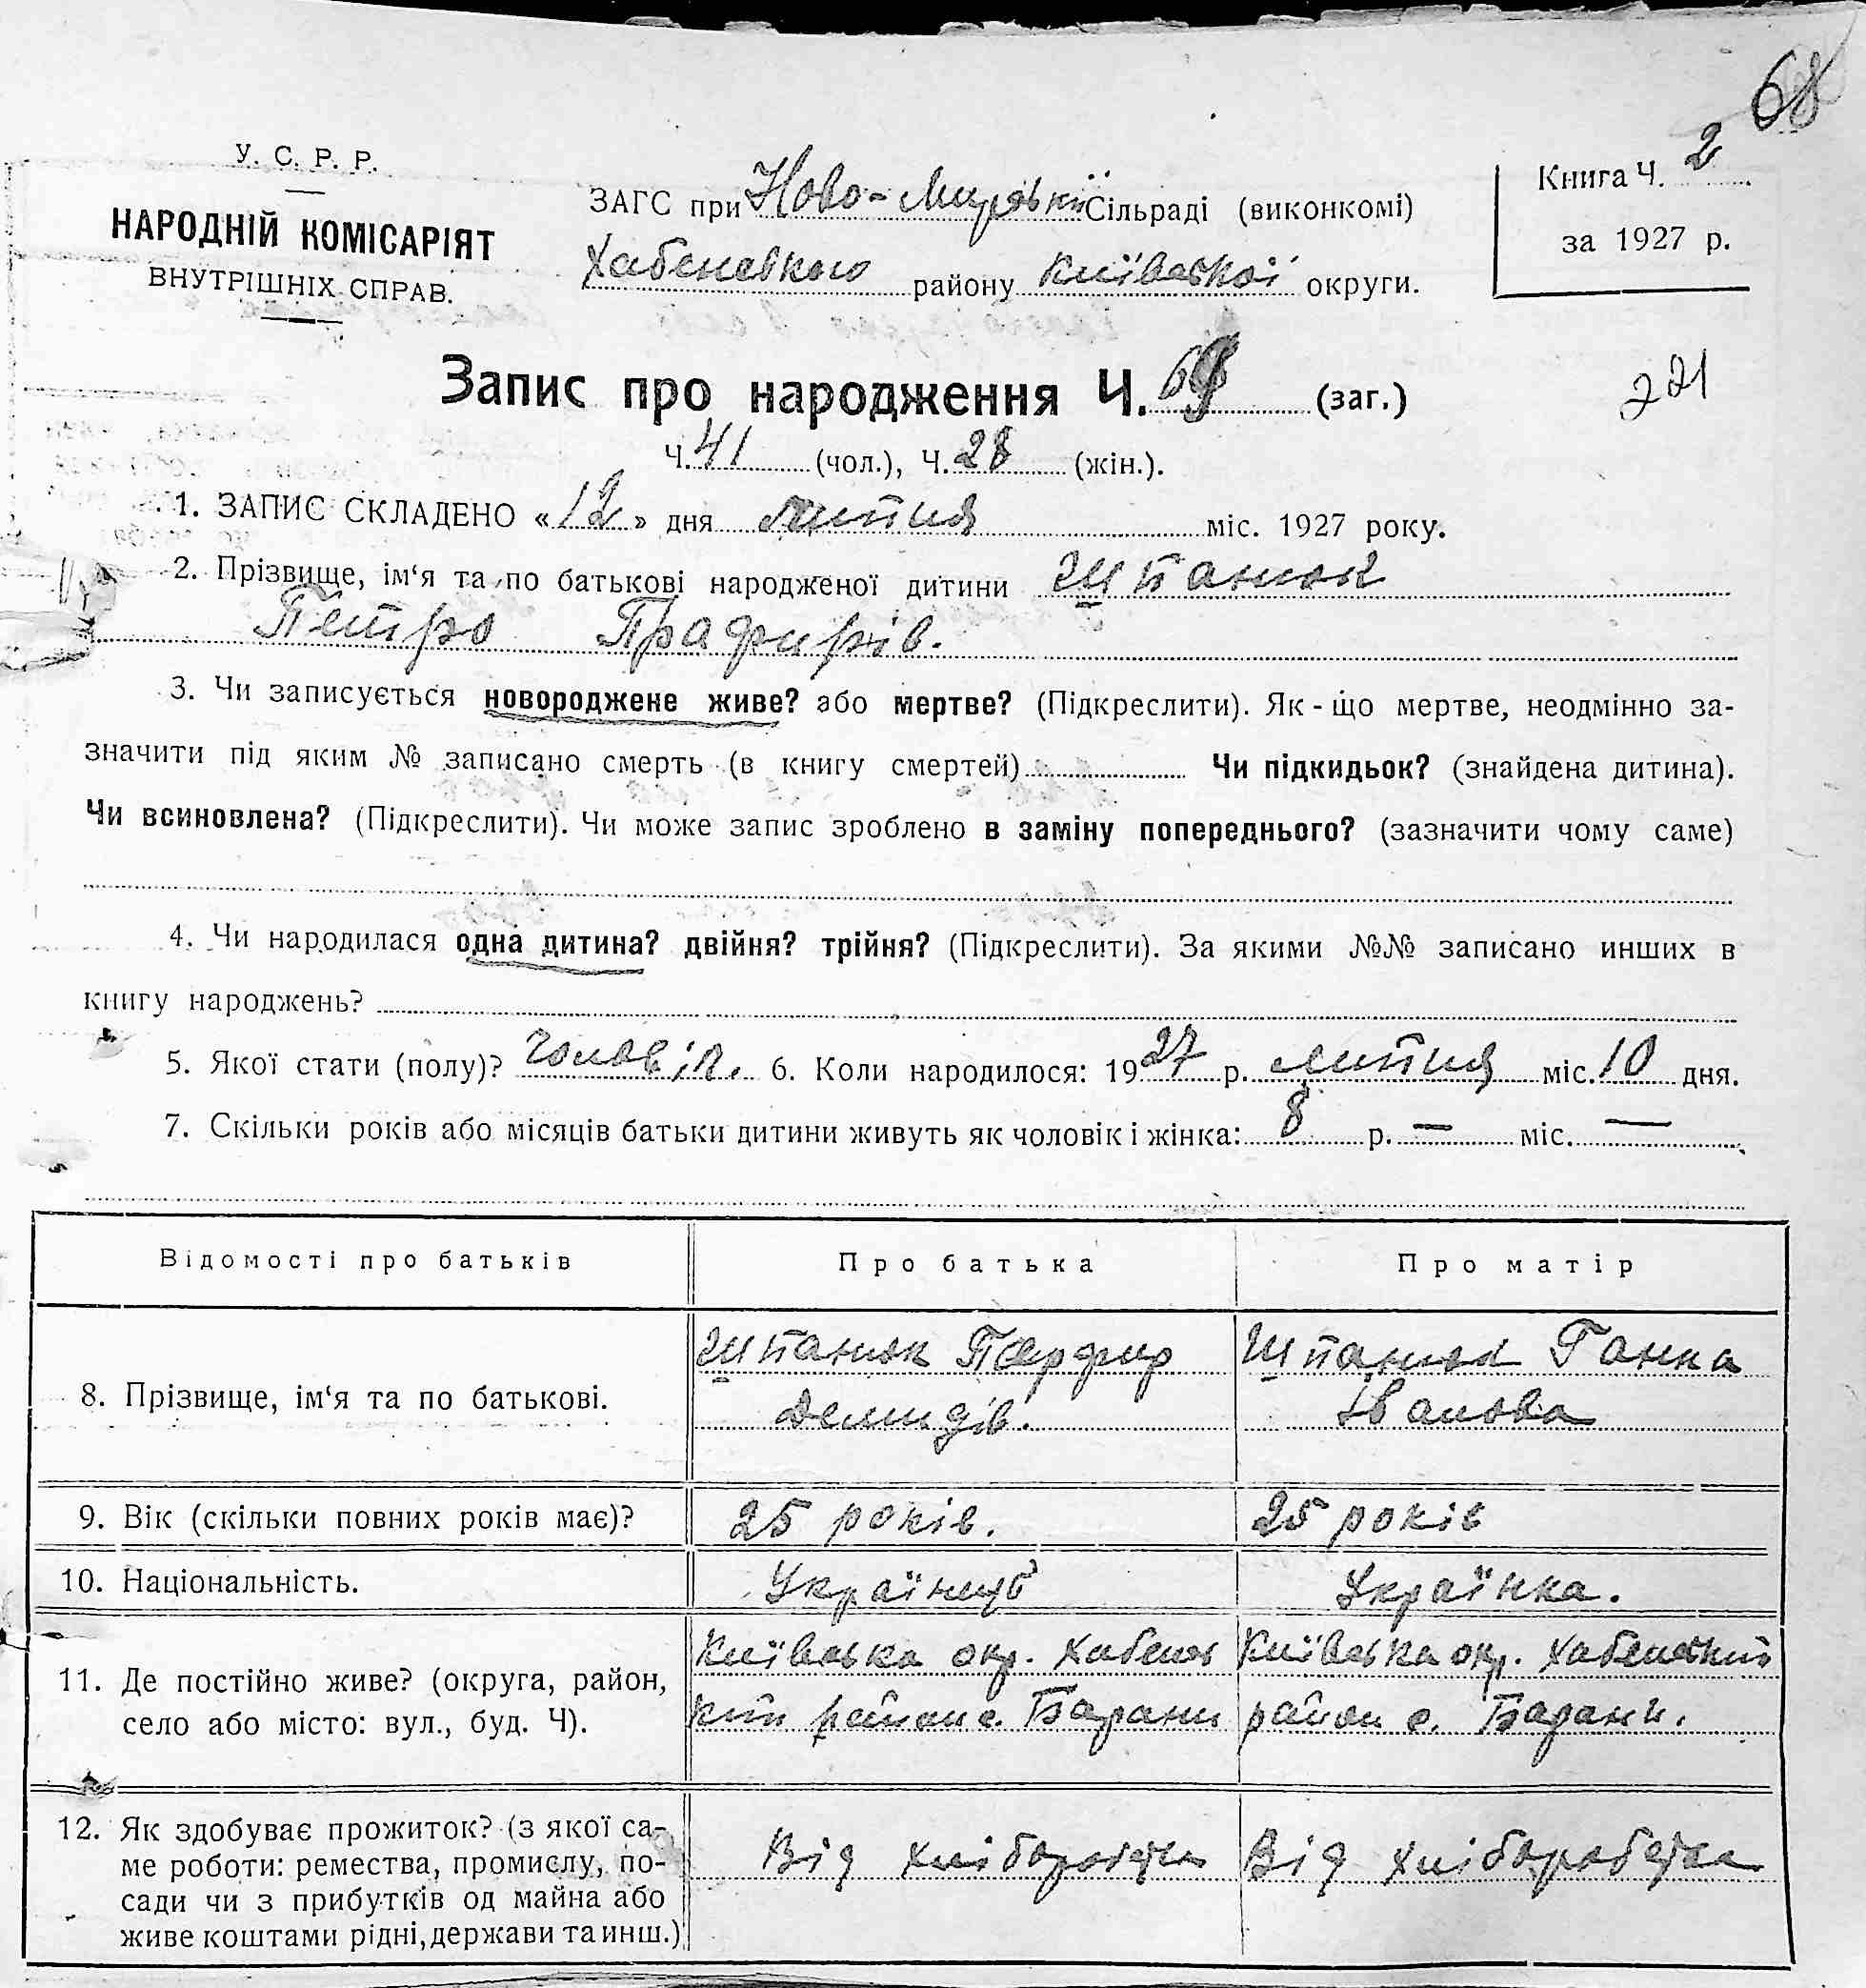 68
У. С. Р. Р.
НАРОДНІЙ КОМІСАРІЯТ
ВНУТРІШНІХ СПРАВ.
ЗАГС при Ново-Мирській Сільраді (виконкомі)
Хабенського району Київської округи.
Книга Ч. 2
за 1927 р.
Запис про народження Ч. 69 (заг.)
221
Ч. 41 (чол.), Ч. 28 (жін.).
1. ЗАПИС СКЛАДЕНО «12» дня липня міс. 1927 року.
2. Прізвище, ім‘я та по батькові народженої дитини Шпанюк
Петро Прафирів.
3. Чи записується новороджене живе? або мертве? (Підкреслити). Як-що мертве, неодмінно за-
значити під яким № записано смерть (в книгу смертей) Чи підкидьок? (знайдена дитина).
Чи всиновлена? (Підкреслити). Чи може запис зроблено в заміну попереднього? (зазначити чому саме)
4. Чи народилася одна дитина? двійня? трійня? (Підкреслити). За якими №№ записано инших в
книгу народжень?
5. Якої стати (полу)? 6. Коли народилося: 1927 р. липня міс. 10 дня.
7. Скільки років або місяців батьки дитини живуть як чоловік і жінка: 8 р. — міс. —
Відомості про батьків Про батька Про матір
8. Прізвище, ім‘я та по батькові.
Шпанюк Парфир
Демидів.
Шпанюк Ганна
Іванова
9. Вік (скільки повних років має)? 25 років. 25 років
10. Національність. Українець Українка.
11. Де постійно живе? (округа, район,
село або місто: вул., буд. Ч).
Київська окр. Хабенсь
кий район с. Барани
Київська окр. Хабенський
район с. Барани.
12. Як здобуває прожиток? (з якої са-
ме роботи: ремества, промислу, по-
сади чи з прибутків од майна або
живе коштами рідні, держави та инш.)
Від хліборобства
Від хліборобства